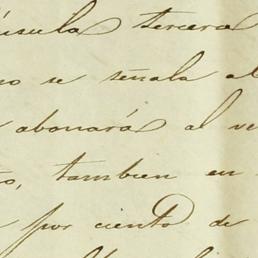 úsula tercera
no se señala al
abonará al ve
to, tambien en
por ciento de